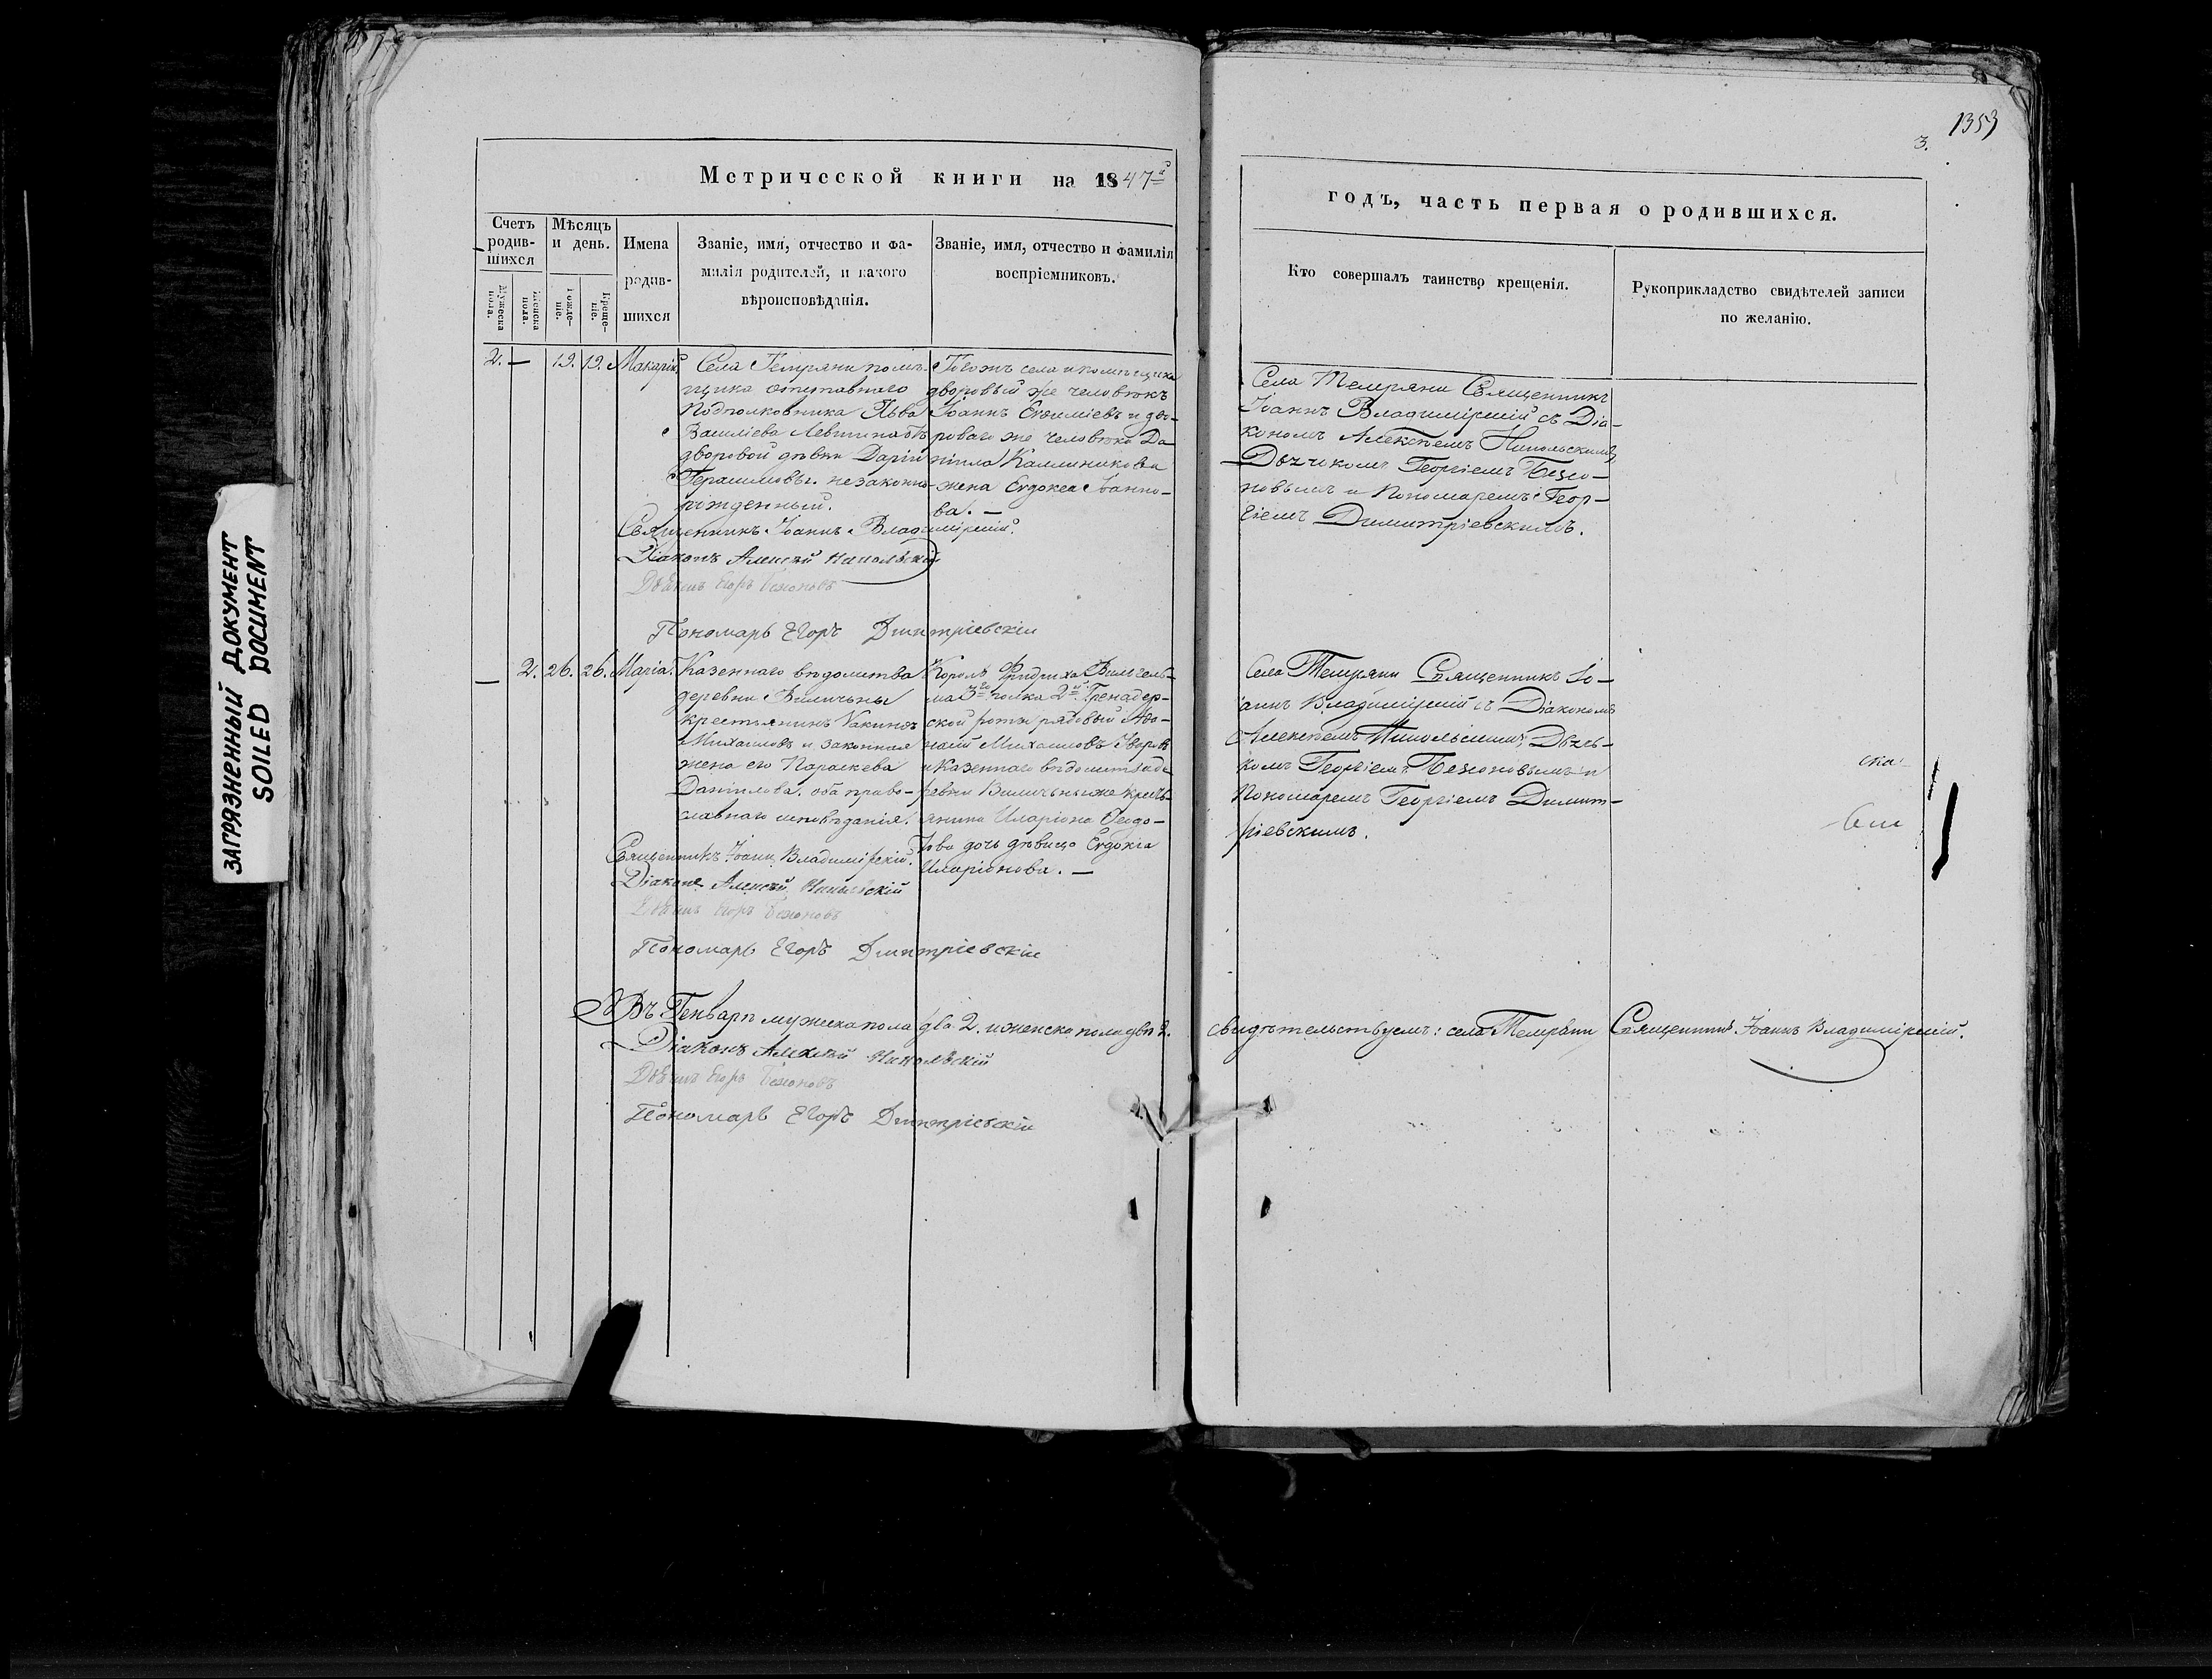 1353
3.
Метрической книги на 1847й
годъ, часть первая о родившихся.
Счетъ родив-шихся
Мужеска пола.
Женска пола.
Мѣсяцъ и день.
Рожде-ніе.
Креще-ніе.
Имена родив-шихся
Званіе, имя, отчество и фа-
милія родителей, и какого
вѣроисповѣданія.
Званіе, имя, отчество и фамилія
воспріемниковъ.
Кто совершалъ таинство крещенія.
Рукоприкладство свидѣтелей записи
по желанію.
2. — 19. 19. Макарій
Села Темряни помѣ-
щика отставнаго
Подполковника Льва
Василіева Левшина отъ
дворовой дѣвки Даріи
Герасимовы. незаконно-
рожденный.
Тогожъ села и помѣщика
дворовый же человѣкъ
Іоаннъ Евѳиміевъ и дво-
роваго же человѣка Да-
ніила Каллиникова
жена Евдокеа Іоанно-
ва. —
Села Темряни Священникъ
Іоаннъ Владимірскій съ Діа-
кономъ Алексѣемъ Никольскимъ,
Дьячкомъ Георгіемъ Безсо-
новымъ и Пономаремъ Геор-
гіемъ Димитріевскимъ.
Священникъ Іоаннъ Владимірскій.
Діаконъ Алексѣй Никольскій
Дьячекъ Егоръ Безсоновъ
Пономарь Егоръ Дмитріевскій
— 2. 26. 26. Марія.
Казеннаго вѣдомства
деревни
крестьянинъ Іакинѳъ
Михаиловъ и законная
жена его Параскева
Даніилова. оба право-
славнаго исповѣданія.
Король Фридриха Вильгель-
ма 3го полка 2й Гренадер-
ской роты рядовый
Михаиловъ
и Казеннаго вѣдомства де-
ревни же кресть-
янина Иларіона Ѳеодо-
рова дочь дѣвица Евдокіа
Иларіонова. —
Села Темряни Священникъ Іо-
аннъ Владимірскій съ Діакономъ
Алексѣемъ Никольскимъ, Дьяч-
комъ Георгіемъ Безсоновымъ и
Пономаремъ Георгіемъ Димит-
ріевскимъ.
Священникъ Іоаннъ Владимірскій.
Діаконъ Алексѣй Никольскій
Дьячекъ Егоръ Безсоновъ
Пономарь Егоръ Дмитріевскій
Въ Генварѣ мужеска пола два 2. и женска пола двѣ 2. свидѣтельствуемъ: села Темряни Священникъ Іоаннъ Владимірскій.
Діаконъ Алексѣй Никольскій
Дьячекъ Егоръ Безсоновъ
Пономарь Егоръ Дмитріевскій
ЗАГРЯЗНЕННЫЙ ДОКУМЕНТ
SOILED DOCUMENT